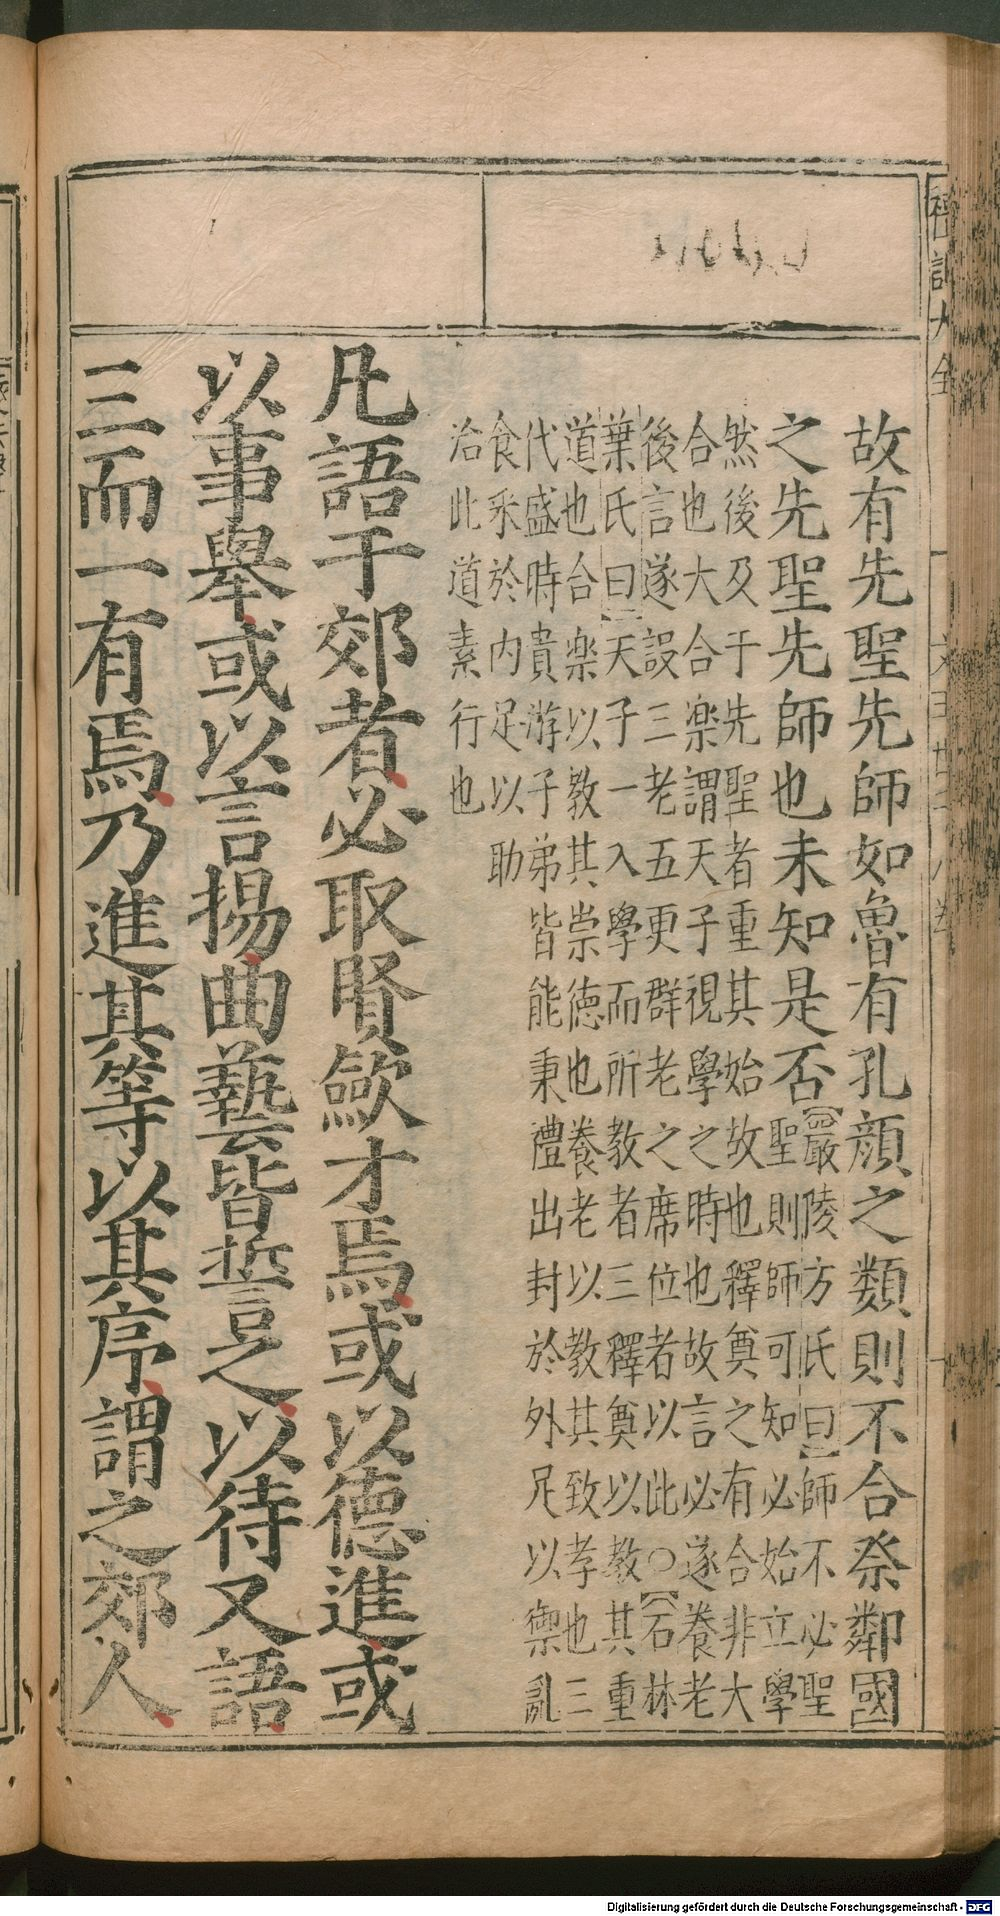 故有先聖先師如魯有孔顔之類則不合祭鄰國
之先聖先師也未知是否
嚴陵方氏曰師不必聖
聖則師可知必始立學
然後及于先聖者重其始故也釋奠之有合非大
合也大合楽謂天子視學之時也故言必遂養老
後言遂設三老五更群老之席位者以此○石林
葉氏曰天子一入學而所教者三釋奠以教其重
道也合楽以教其崇徳也養老以教其致孝也三
代盛時貴游子弟皆能秉禮出封於外足以禦亂
食采於内足以助
治此道素行也
凡語于郊者必取賢歛才焉或以德進或
以事舉或以言揚曲藝皆誓之以待又語
三而一有焉乃進其等以其序謂之郊人
Digitalisierung gefördert durch die Deutsche Forschungsgemeinschaft - DFG